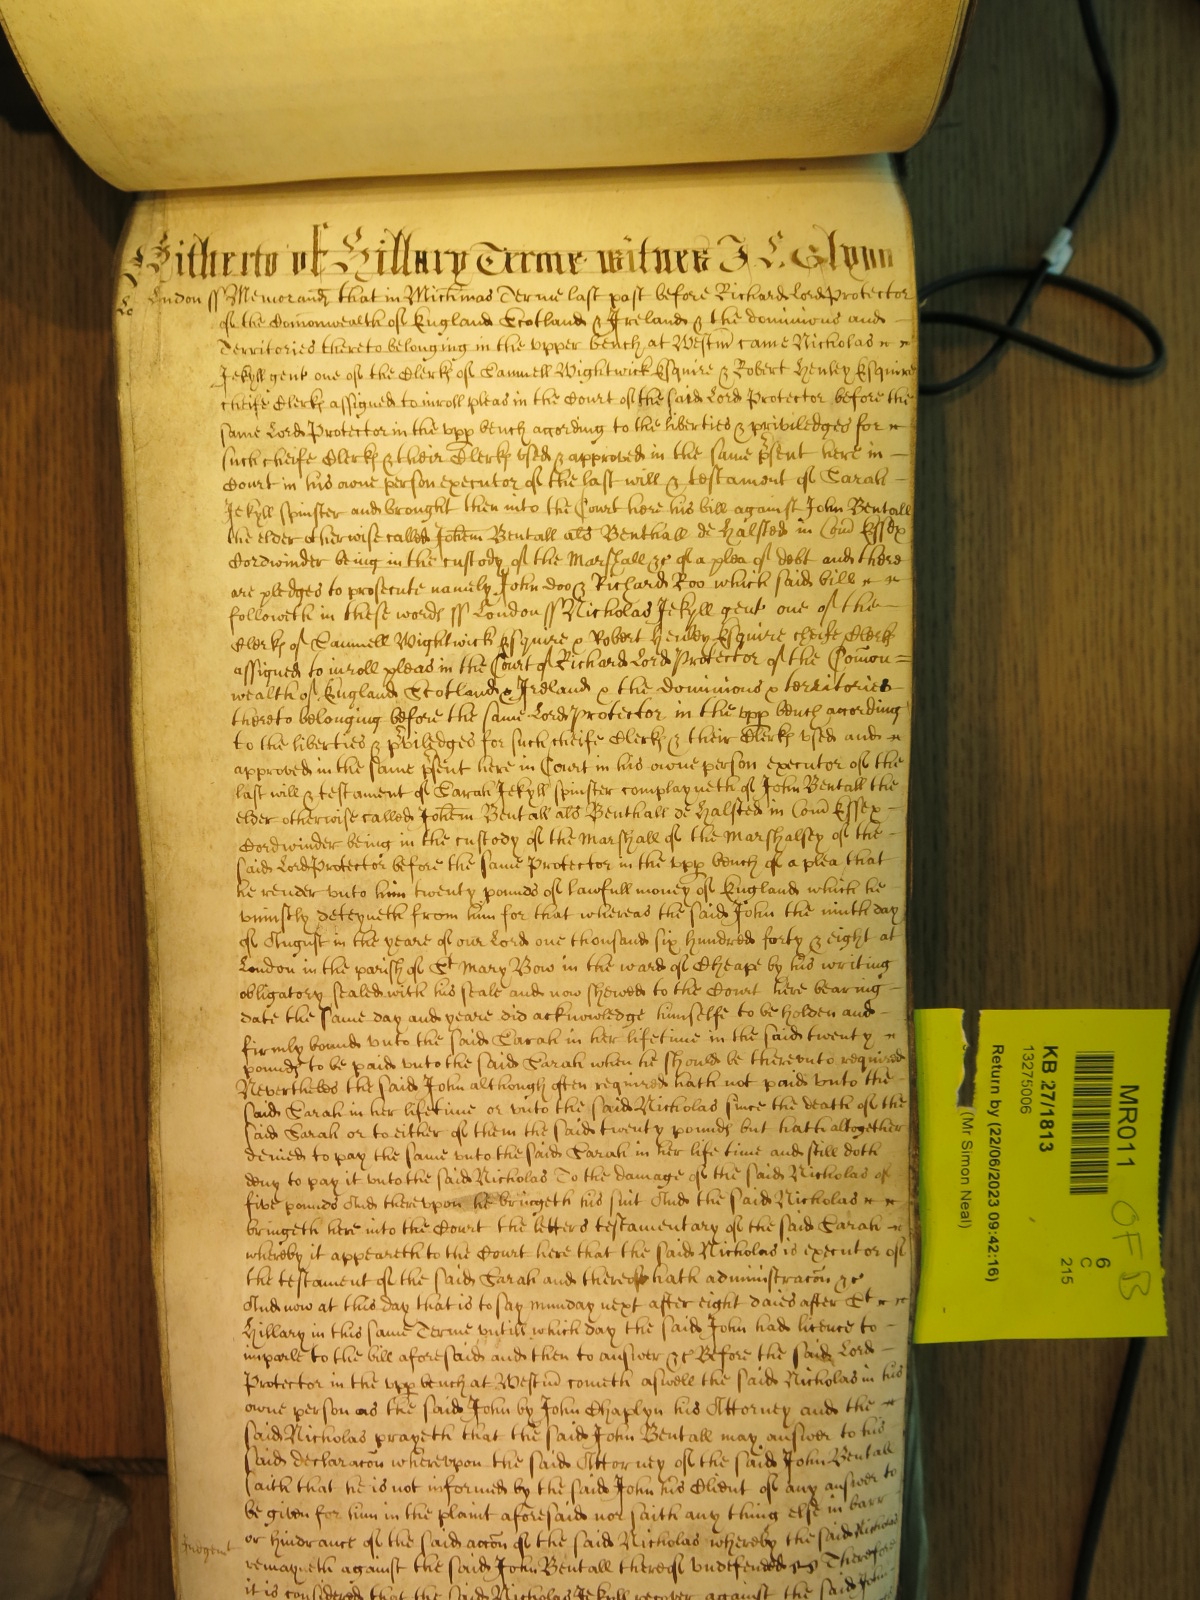 Hitherto of Hillary Terme witnes J C Glynn
London ss Memorand that in Michmas Terme last past before Richard Lord Protector
of the Comonwealth of England Scotland & Ireland & the dominions and
Territories thereto belonging in the vpper bench at Westm came Nicholas
Jekyll gent one of the Clerks of Samuell Wightwick Esquire & Robert Henley Esquire
cheife Clerks assigned to inroll pleas in the Court of the said Lord Protector before the
same Lord Protector in the vpp bench according to the liberties & priviledges for
such cheife Clerks & their Clerks vsed & approved in the same psent here in
Court in his owne person executor of the last will & testament of Sarah
Jekyll spinster and brought then into the Court here his bill against John Bentall
the elder otherwise called Johem Bentall als Benthall de Halsted in Com Essex
Cordwinder being in the custody of the Marshall &c of a plea of debt and there
are pledges to prosecute namely John Doo & Richard Roo which said bill
followeth in these words ss London ss Nicholas Jekyll gent one of the
Clerks of Samuell Wightwick Esquire & Robert Henley Esquire cheife Clerks
assigned to inroll pleas in the Court of Richard Lord Protector of the Comon=
wealth of England Scotland & Ireland & the dominions & territories
thereto belonging before the same Lord Protector in the vpp bench according
to the liberties & pviledges for such cheife Clerks & their Clerks vsed and
approved in the same psent here in Court in his owne person executor of the
last will & testament of Sarah Jekyll spinster complayneth of John Bentall the
elder otherwise called Johem Bentall als Benthall de Halsted in Com Essex
Cordwinder being in the custody of the Marshall of the Marshalsey of the
said Lord Protector before the same Protector in the vpp bench of a plea that
he render vnto him twenty pounds of lawfull money of England which he
vniustly deteyneth from him for that whereas the said John the ninth day
of August in the yeare of our Lord one thousand six hundred forty & eight at
London in the parish of St Mary Bow in the ward of Cheape by his writing
obligatory sealed with his seale and now shewed to the Court here bearing
date the same day and yeare did acknowledge himselfe to be holden and
firmly bound vnto the said Sarah in her lifetime in the said twenty
pounds to be paid vnto the said Sarah when he should be therevnto required
Neverthelesse the said John although often required hath not paid vnto the
said Sarah in her lifetime or vnto the said Nicholas since the death of the
said Sarah or to either of them the said twenty pounds but hath altogether
denied to pay the same vnto the said Sarah in her life time and still doth
deny to pay it vnto the said Nicholas To the damage of the said Nicholas of
five pounds And therevpon he bringeth his suit And the said Nicholas
bringeth here into the Court the letters testamentary of the said Sarah
whereby it appeareth to the Court here that the said Nicholas is executor of
the testament of the said Sarah and thereof hath administracon &c
And now at this day that is to say munday next after eight daies after St
Hillary in this same Terme vntill which day the said John had licence to
imparle to the bill aforesaid and then to answer &c Before the said Lord
Protector in the vpp bench at Westm cometh aswell the said Nicholas in his
owne person as the said John by John Chaplyn his Attorney and the
said Nicholas prayeth that the said John Bentall may answer to his
said declaracon wherevpon the said Attorney of the said John Bentall
saith that he is not informed by the said John his Client of any answer to
be given for him in the plaint aforesaid nor saith any thing else in barr
or hindrance of the said accon of the said Nicholas whereby the said Nicholas
Judgent remayneth against the said John Bentall thereof vndefended &c Therefore
it is considered that the said Nicholas Jekyll recover against the said John
MR011
6
C
215
OF B
KB 27/1813
13275006
Return by (22/06/2023 09:42:16)
(Mr Simon Neal)